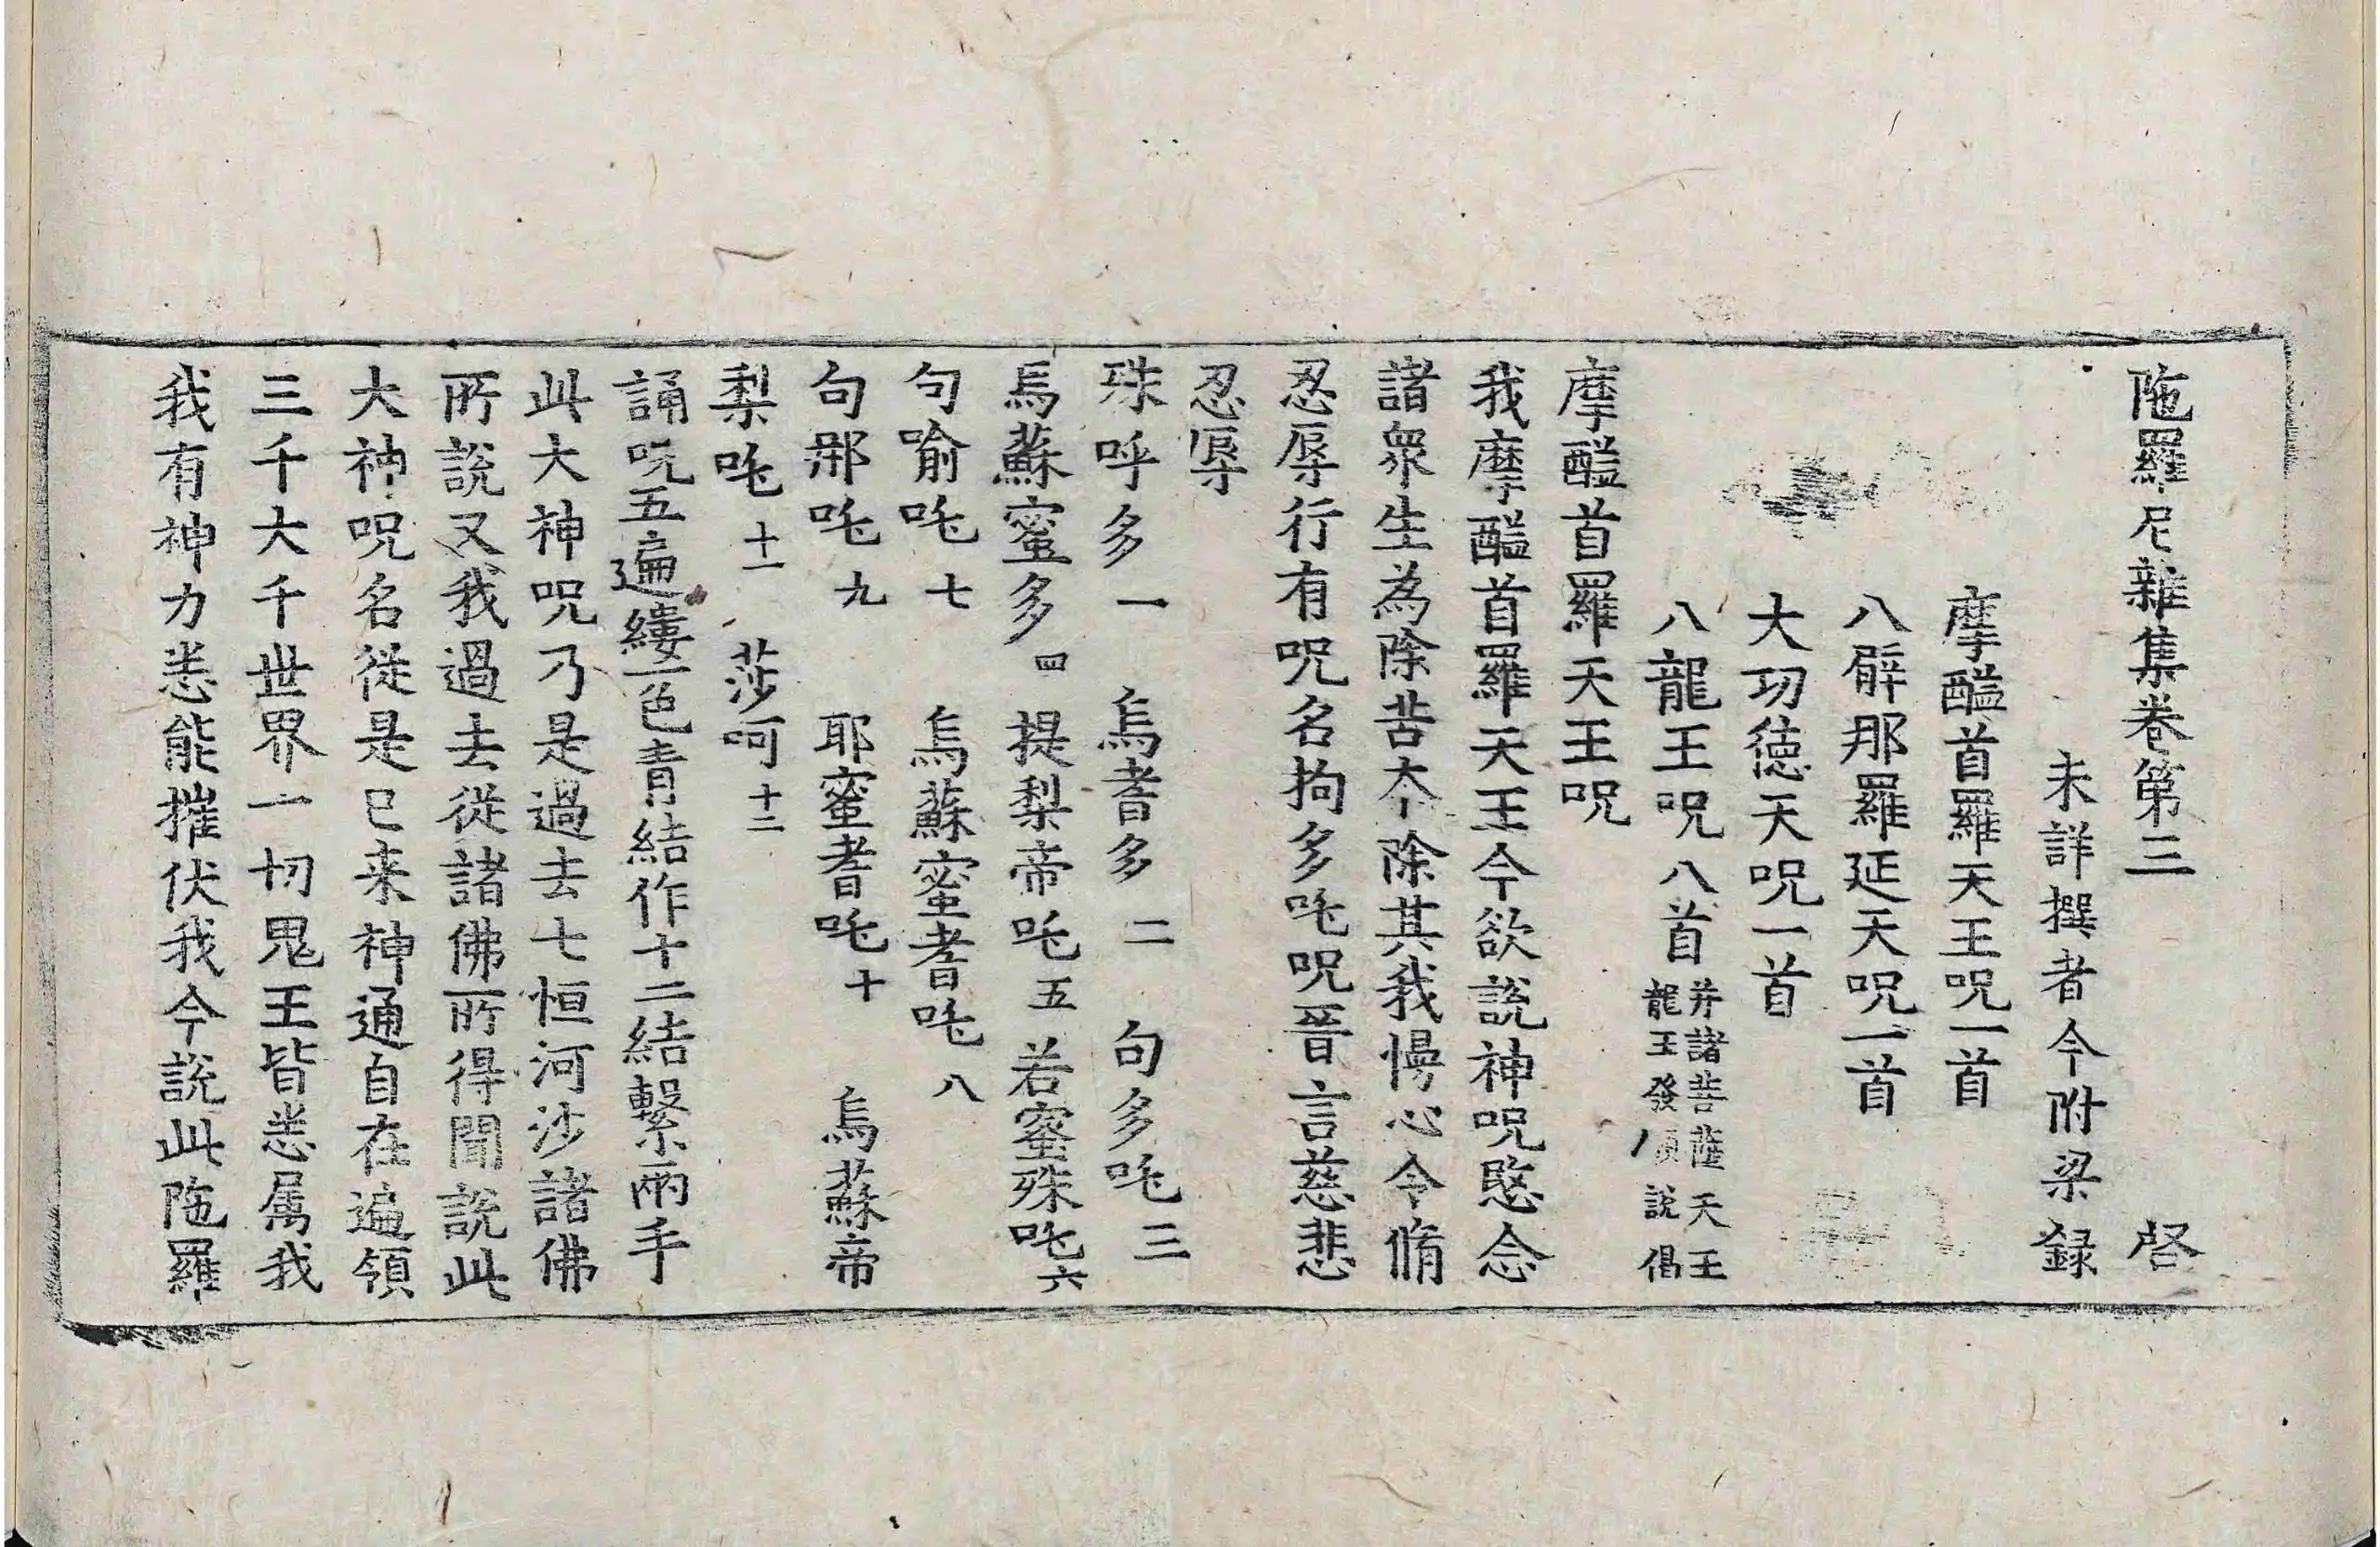 陁羅尼雜集卷第三　啓
未詳撰者今附梁録
摩醯首羅天王呪一首
八臂那羅延天呪一首
大功德天呪一首
八龍王呪八首 并諸菩薩天王龍王發願說偈
摩醯首羅天王呪
我摩醯首羅天王今欲說神呪愍念
諸衆生為除苦本除其我慢心令脩
忍辱行有呪名拘多吒呪晉言慈悲
忍辱
殊呼多 一 烏耆多 二 句多吒 三
烏蘇蜜多 四 提梨帝吒 五 若蜜殊吒 六
句喻吒 七 烏蘇蜜耆吒 八
句那吒 九 耶蜜耆吒 十 烏蘇帝
梨吒 十一 莎呵 十二
誦呪五遍縷一色青結作十二結繫兩手
此大神呪乃是過去七恒河沙諸佛
所說又我過去從諸佛所得聞說此
大神呪名從是已来神通自在遍領
三千大千世界一切鬼王皆悉属我
我有神力悉能摧伏我今說此陁羅